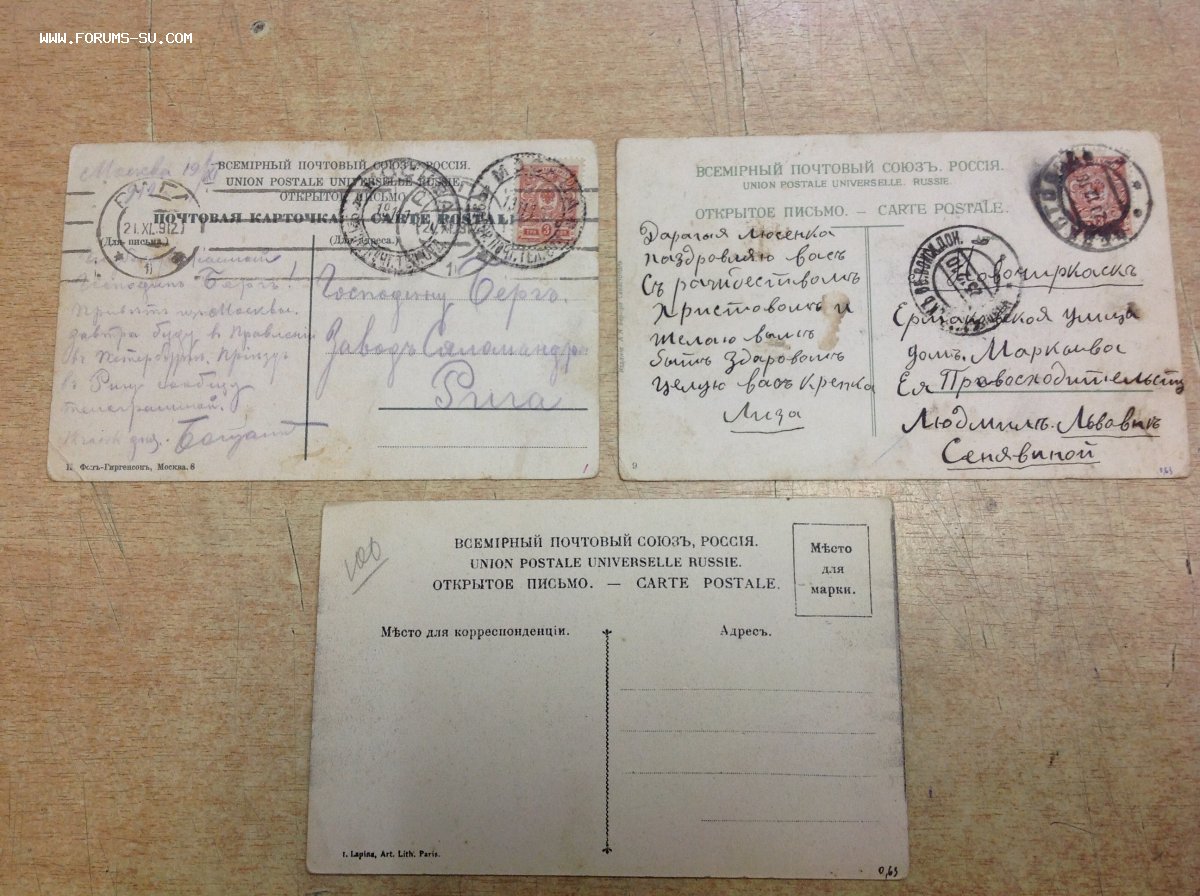 WWW.FORUMS-SU.COM
Москва 19
ВСЕМІРНЫЙ ПОЧТОВЫЙ СОЮЗЪ. РОССІЯ.
UNION POSTALE UNIVERSELLE RUSSIE.
ОТКРЫТОЕ
ПОЧТОВАЯ КАРТОЧКА — CARTE POSTALE
(Для письма.)
(Для адреса.)
21.XI.912
Господину Бергъ.
Заводъ Саламандра
Рига
Бергъ!
Привѣтъ изъ Москвы.
Завтра буду в Правленіи
в Петербургѣ.
в Ригу сообщу
телеграммой.
К. Фонъ-Гиргенсонъ, Москва. 8
ВСЕМІРНЫЙ ПОЧТОВЫЙ СОЮЗЪ. РОССІЯ.
UNION POSTALE UNIVERSELLE. RUSSIE
ОТКРЫТОЕ ПИСЬМО. — CARTE POSTALE.
Дарагая Люсенка
паздровляю васъ
Съ рожбествомъ
Христовомъ и
желаю вамъ
быть здаровомъ
целую васъ крепка
Лиза
9
Новочиркаскъ
Ермаковская улица
домъ. Маркыва
Ея Правосходительству
Людмилъ. Львовнъ
Сенявиной
0,63
100
ВСЕМІРНЫЙ ПОЧТОВЫЙ СОЮЗЪ, РОССІЯ.
UNION POSTALE UNIVERSELLE RUSSIE.
ОТКРЫТОЕ ПИСЬМО. — CARTE POSTALE.
Мѣсто
для
марки.
Мѣсто для корреспонденціи.
Адресъ.
I. Lapina, Art. Lith. Paris.
0,63